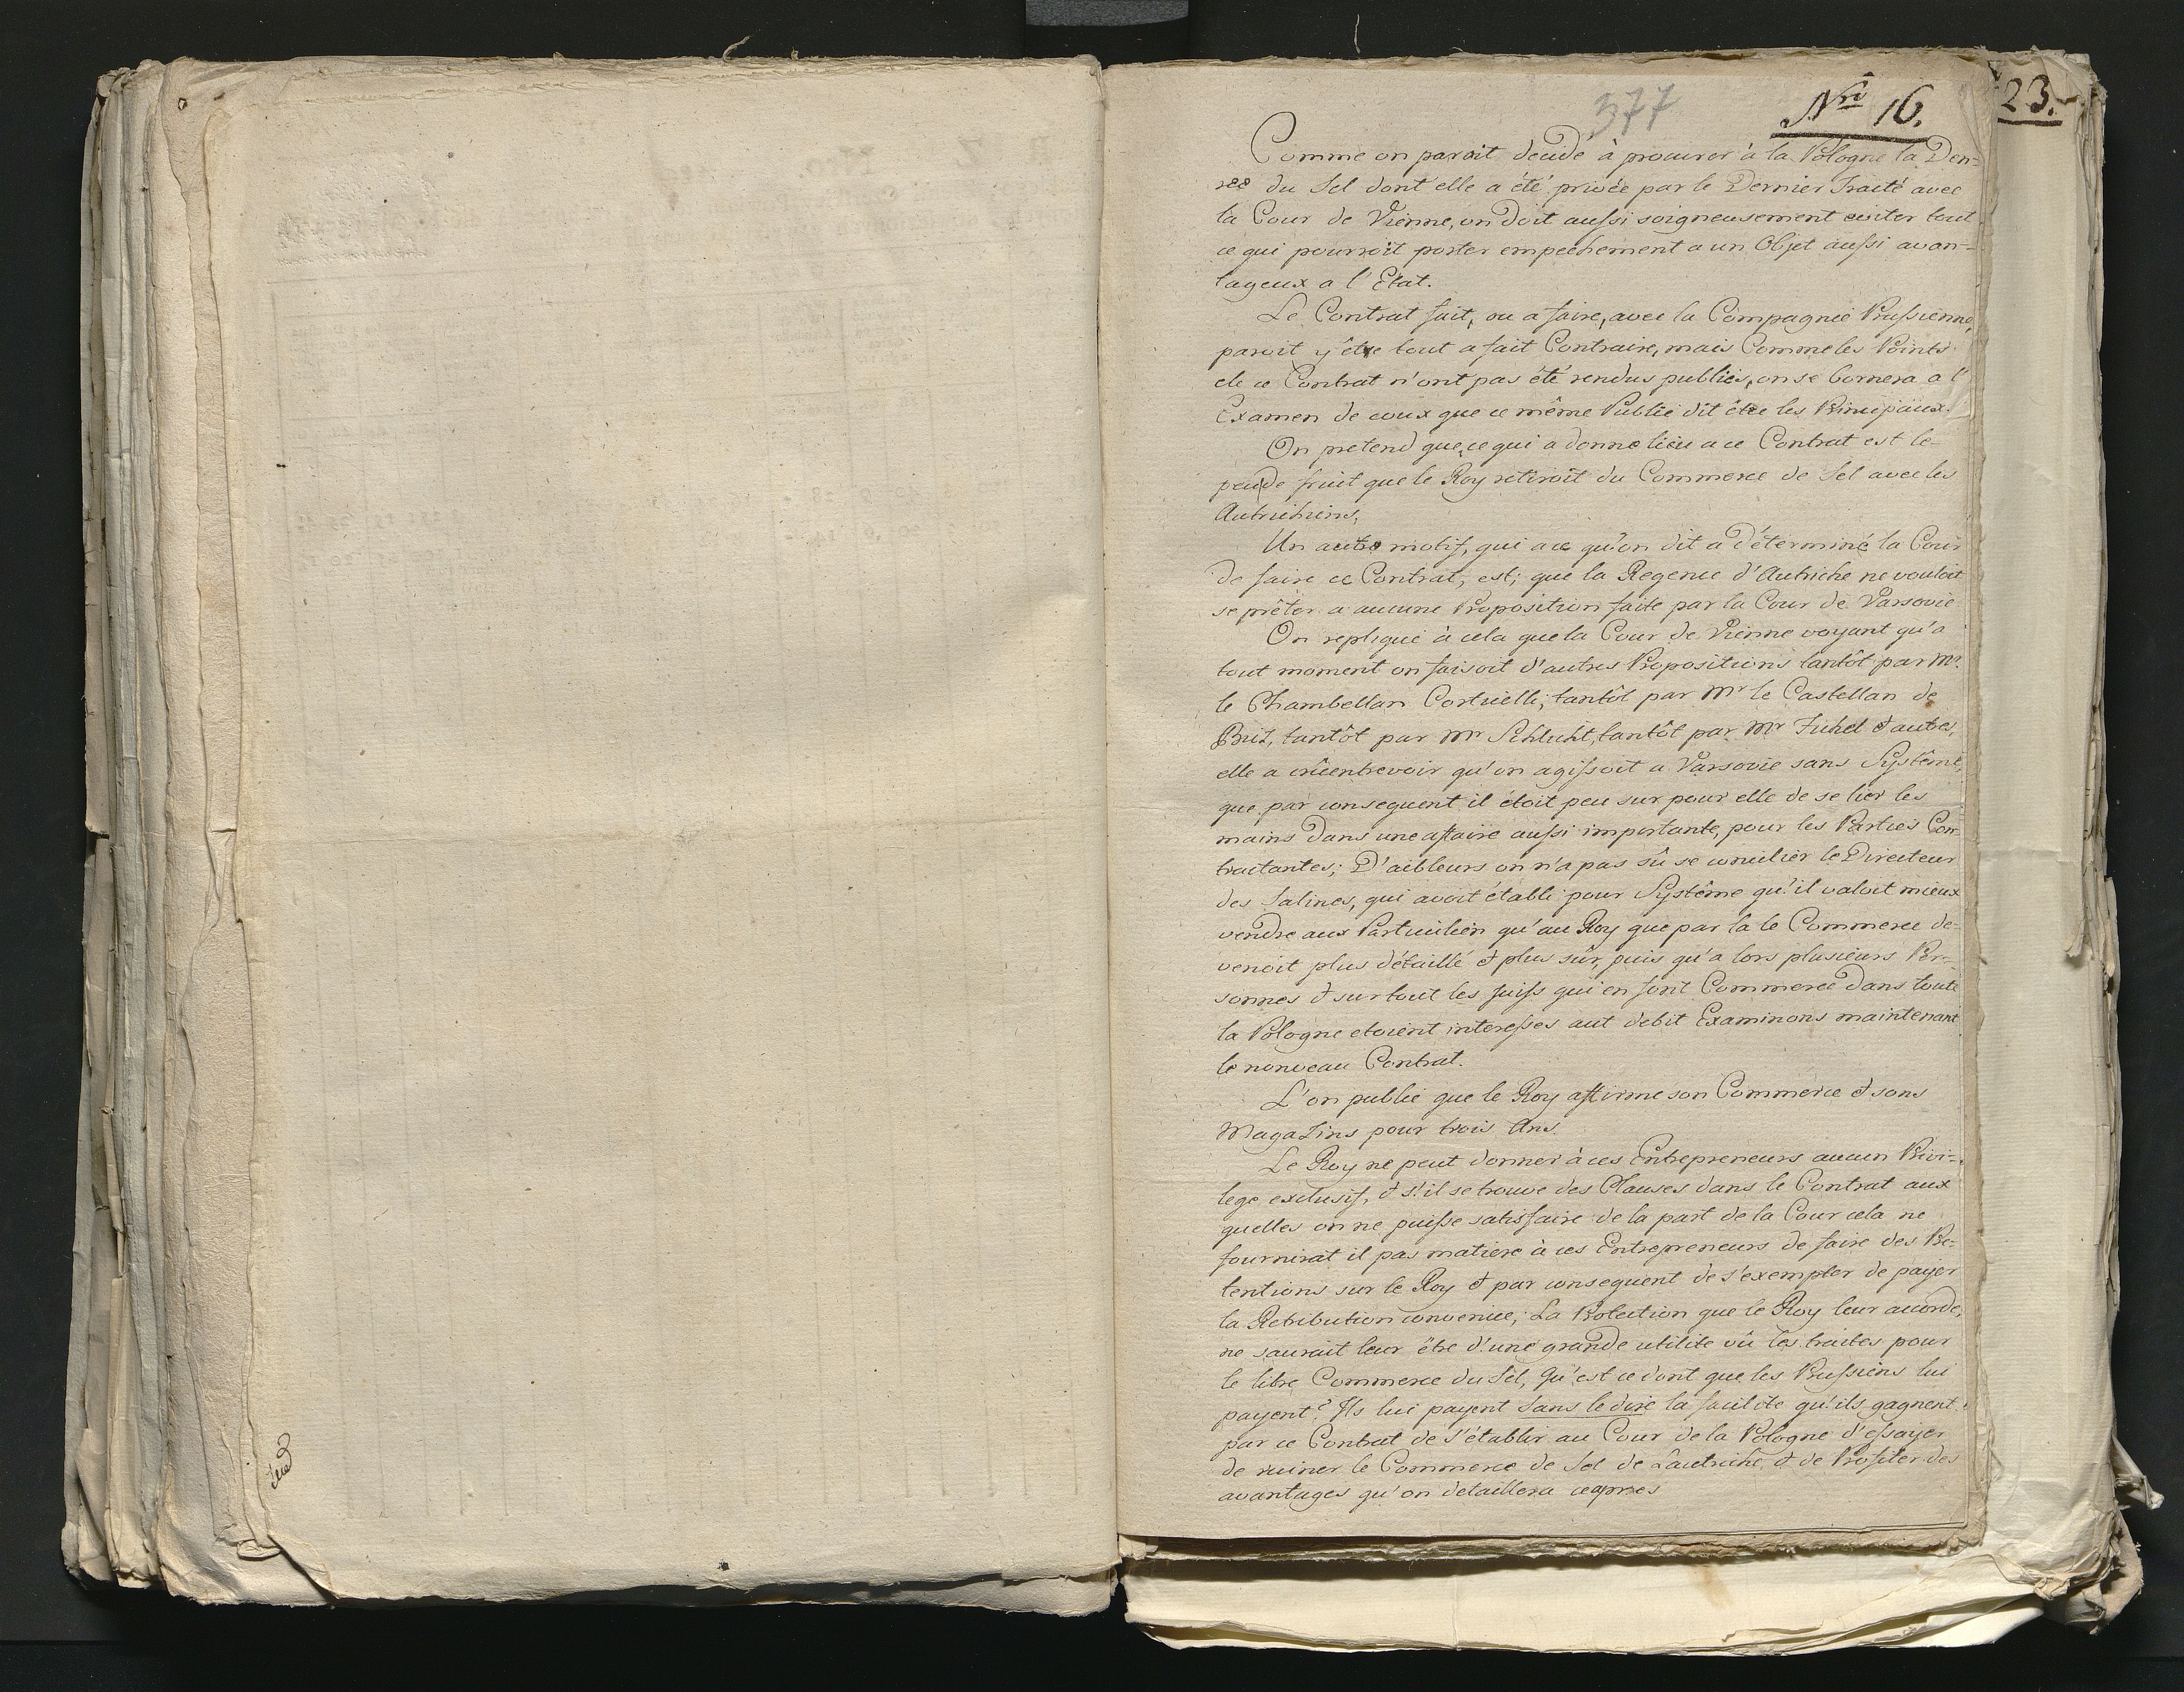 377
Nri 16.
23.
Comme on paroit decidé à procurer à la Pologne la Den=
rée du Sel dont elle a été privée par le Dernier Traité avec
la Cour de Vienne, on doit aussi soigneusement eviter tout
ce qui pourroit porter empechement a un Objet aussi avan=
tageux a l'Etat.
Le Contrat fait, ou a faire, avec la Compagnie Prussienne,
paroit y être tout a fait Contraire, mais Comme les Points
de ce Contrat n'ont pas été rendus publics, on se bornera a l'
Examen de ceux que ce même Public dit être les Principaux.
On pretend que ce qui a donné lieu a ce Contrat est le
peu de fruit que le Roy retiroit du Commerce de Sel avec les
Autrichiens,
Un autre motif, qui a ce qu'on dit a déterminé la Cour
de faire ce Contrat, est; que la Regence d'Autriche ne vouloit
se prêter a aucune Proposition faite par la Cour de Varsovie
On replique à cela que la Cour de Vienne voyant qu'a
tout moment on faisoit d'autres Propositions tantôt par Mr.
le Chambellan Corticelli, tantôt par Mr le Castellan de
tantôt par Mr Schlucht, tantôt par Mr Juhel & autres,
elle a crû entrevoir qu'on agissoit a Varsovie sans Système,
que par consequent il étoit peu sur pour elle de se lier les
mains dans une affaire aussi importante, pour les Parties Con=
tractantes; D'ailleurs on n'a pas sû se concilier le Directeur
des Salines, qui avoit établi pour Système qu'il valoit mieux
vendre aux Particuliers qu'au Roy que par la le Commerce de=
venoit plus détaillé & plus sûr, puis qu'a lors plusieurs Per=
sonnes & sur tout les Juifs qui en font Commerce dans toute
la Pologne etoient interesses aut debit Examinons maintenant
le nouveau Contrat.
L'on publie que le Roy afferme son Commerce & sons
Magazins pour trois Ans.
Le Roy ne peut donner à ces Entrepreneurs aucun Privi=
lege exclusif, & s'il se trouve des Clauses dans le Contrat aux
quelles on ne puisse satisfaire de la part de la Cour cela ne
fournirat il pas matiere à ces Entrepreneurs de faire des Pre=
tentions sur le Roy & par consequent de s'exempter de payer
la Retribution convenue; La Protection que le Roy leur accorde,
ne saurait leur être d'une grande utilite vû les traites pour
le libre Commerce du Sel, Qu'est ce dont que les Prussiens lui
payent? Ils lui payent sans le dire la facilite qu'ils gagnent
par ce Contrat de s'établir au Cour de la Pologne d'essayer
de ruiner le Commerce de Sel de Lautriche & de Profiter des
avantages qu'on detaillera ceapres